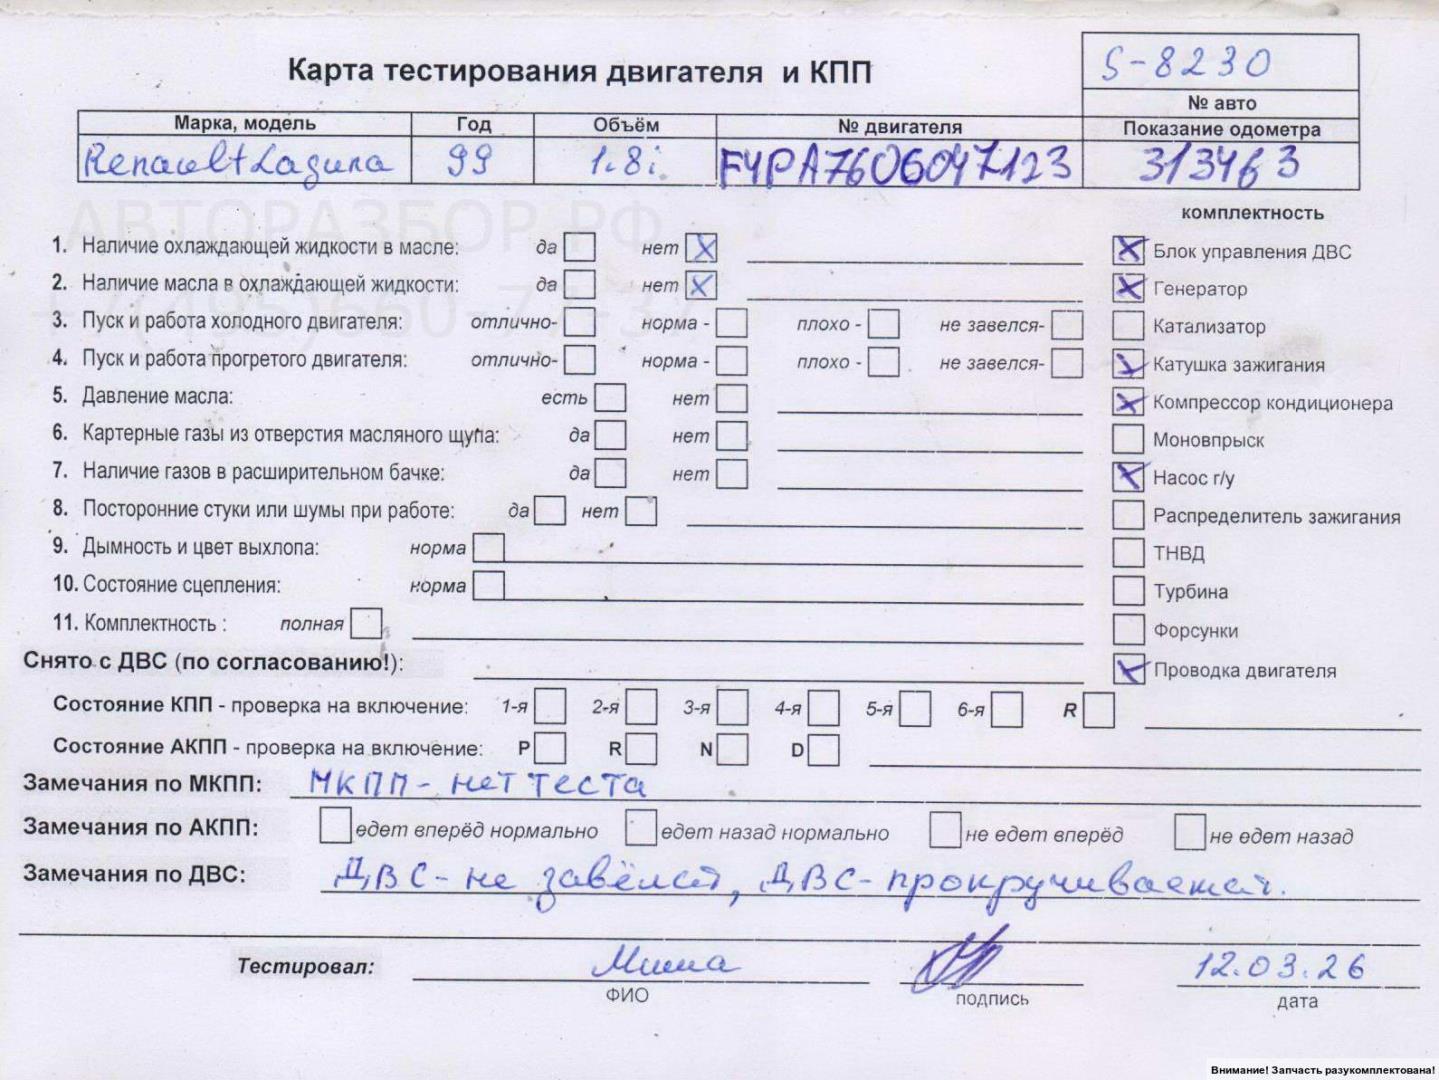 S-8230
Карта тестирования двигателя и КПП
№ авто
Марка, модель Год Объём № двигателя Показание одометра
Renault Laguna 99 1.8i F4PA7606047123 313463
АВТОРАЗБОР.РФ
комплектность
1. Наличие охлаждающей жидкости в масле: да нет X
Блок управления ДВС
2. Наличие масла в охлаждающей жидкости: да нет X
Генератор
+7(495)660-77-37
3. Пуск и работа холодного двигателя: отлично- норма - плохо - не завелся-
Катализатор
4. Пуск и работа прогретого двигателя: отлично- норма - плохо - не завелся-
Катушка зажигания
5. Давление масла: есть нет
Компрессор кондиционера
6. Картерные газы из отверстия масляного щупа: да нет
Моновпрыск
7. Наличие газов в расширительном бачке: да нет
Насос г/у
8. Посторонние стуки или шумы при работе: да нет
Распределитель зажигания
9. Дымность и цвет выхлопа: норма
ТНВД
10. Состояние сцепления: норма
Турбина
11. Комплектность : полная
Форсунки
Снято с ДВС (по согласованию!):
Проводка двигателя
Состояние КПП - проверка на включение: 1-я 2-я 3-я 4-я 5-я 6-я R
Состояние АКПП - проверка на включение: P R N D
Замечания по МКПП: МКПП - нет теста
Замечания по АКПП: едет вперёд нормально едет назад нормально не едет вперёд не едет назад
Замечания по ДВС: ДВС - не завёлся, ДВС - прокручивается.
Тестировал: Миша 12.03.26
ФИО подпись дата
Внимание! Запчасть разукомплектована!